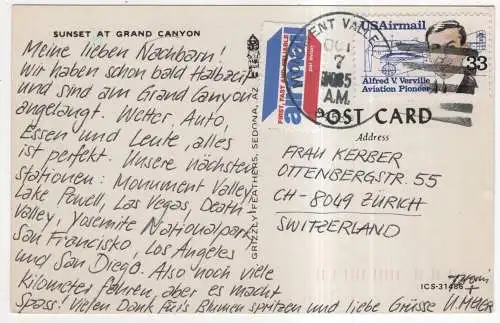 SUNSET AT GRAND CANYON
Meine lieben Nachbarn!
Wir haben schon bald Halbzeit
und sind am Grand Canyon
angelangt. Wetter, Auto,
Essen und Leute, alles
ist perfekt. Unsere nächsten
Stationen: Monument Valley,
Lake Powell, Las Vegas, Death
Valley, Yosemite Nationalpark,
San Francisko, Los Angeles
und San Diego. Also noch viele
Kilometer fahren, aber es macht
Spass! Vielen Dank für's Blumen spritzen und liebe Grüsse
U. Meier
GRIZZLY FEATHERS, SEDONA, AZ
FIRST, FAST AND RELIABLE
MENT VALLEY
OCT
7
1985
A.M.
USAirmail
33
Alfred V. Verville
Aviation Pioneer
POST CARD
Address
FRAU KERBER
OTTENBERGSTR. 55
CH-8049 ZÜRICH
SWITZERLAND
ICS-31486